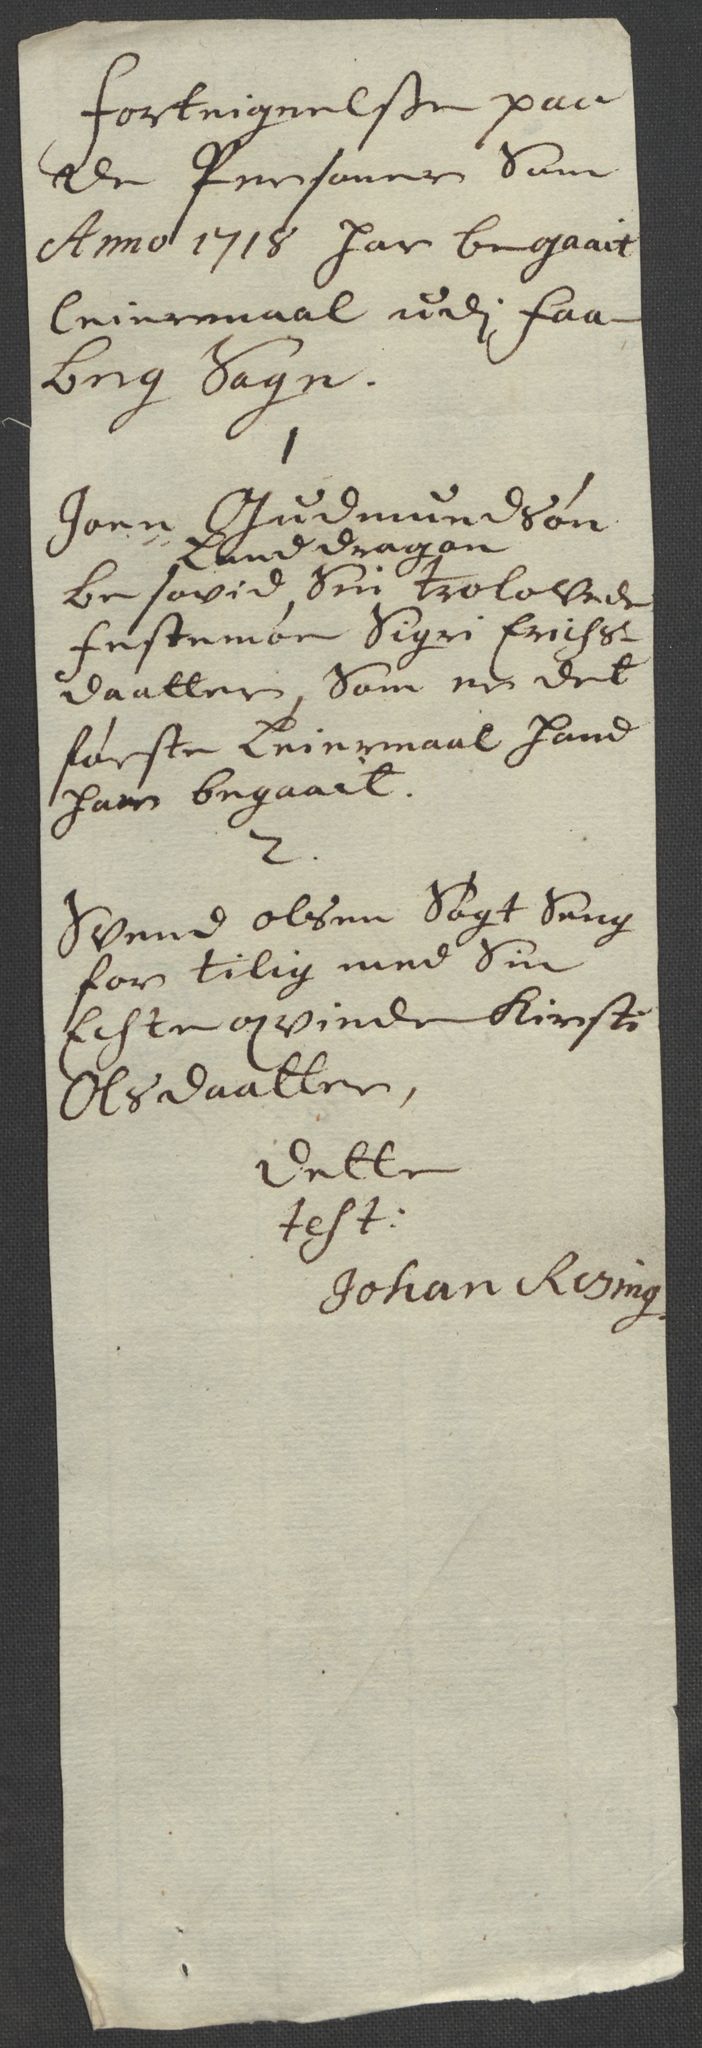 Forteignelsse paa
de Personer Som
Anno 1718 har begaait
leiermaal udj Faa-
berg Sogn.
1
Joen Gudmundsøn
Landdragon
besovid, Sin trolovede
festemøe Sigri Erichs-
daatter, Som er det
første Leiermaal hand
haver begaait.
2.
Svend olsen Søgt Seng
for tilig med Sin
Echte qvinde Kirsti
Olsdaatter,
dette
test:
Johan Rering